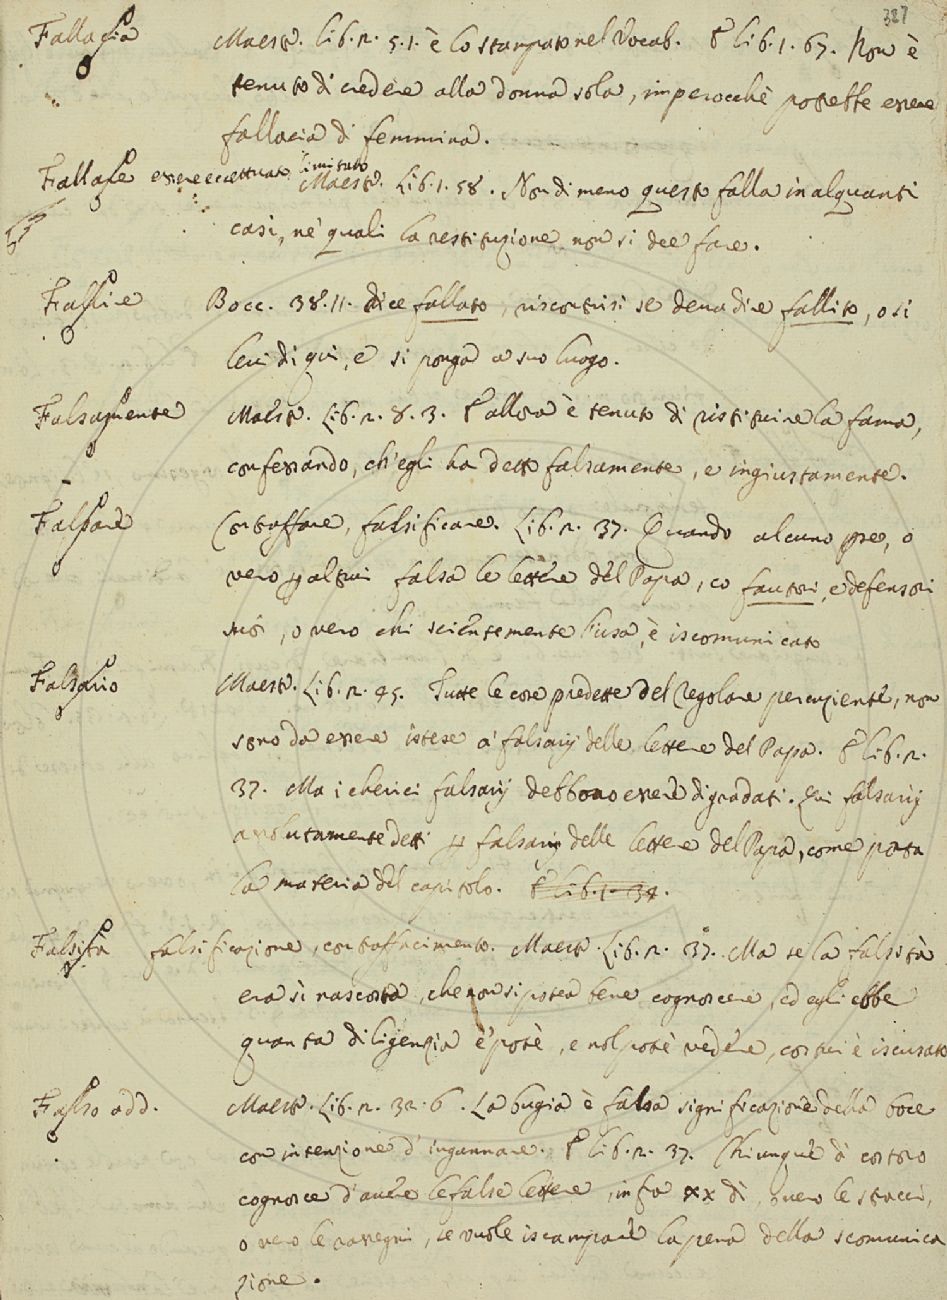 327
Fallacia Maestr. lib. 2. 5. 1. è lo stampato nel Vocab. E lib. 1. 67. Non è
tenuto di credere alla donna sola, imperocchè potrebbe essere
fallacia di femmina.
Fallare essere eccettuato, limitato Maestr. Lib. 1. 58. Nondimeno questo falla in alquanti
casi, ne' quali la restituzione non si dee fare.
Fallire Bocc. 38. 11. dice fallato, riscontrisi se deva dire fallito, o si
levi di qui, e si ponga a suo luogo.
Falsamente Maestr. Lib. 2. 8. 3. E allora è tenuto di ristituire la fama,
confessando, ch'egli ha detto falsamente, e ingiustamente.
Falsare Contraffare, falsificare. Lib. 2. 37. Quando alcuno per se, o
vero p altrui falsa le lettere del Papa, co fautori, e defensori
suoi, o vero chi scientemente l'usa, è iscomunicato
Falsario Maestr. Lib. 2. 45. Tutte le cose predette del Regolare percuziente, non
sono da essere istese a' falsarij delle lettere del Papa. E lib. 2.
37. Ma i cherici falsarij debbono essere digradati. Qui falsarij
assolutamente detti p falsarij delle lettere del Papa, come porta
la materia del capitolo. E lib. 1. 34.
Falsità falsificazione, contraffacimento. Maestr. Lib. 2. 37. Ma se la falsità
era sì nascosta, che non si potea bene cognoscere, ed egli ebbe
quanta diligenzia e' potè, e nol potè vedere, costui è iscusato
Falso add. Maestr. Lib. 2. 32. 6. La bugia è falsa significazione della boce
con intenzione d'ingannare. E lib. 2. 37. Chiunque di costoro
cognosce d'avere le false lettere, infra xx dì, overo le stracci,
o vero le rassegni, se vuole iscampare la pena della scomunica
zione.